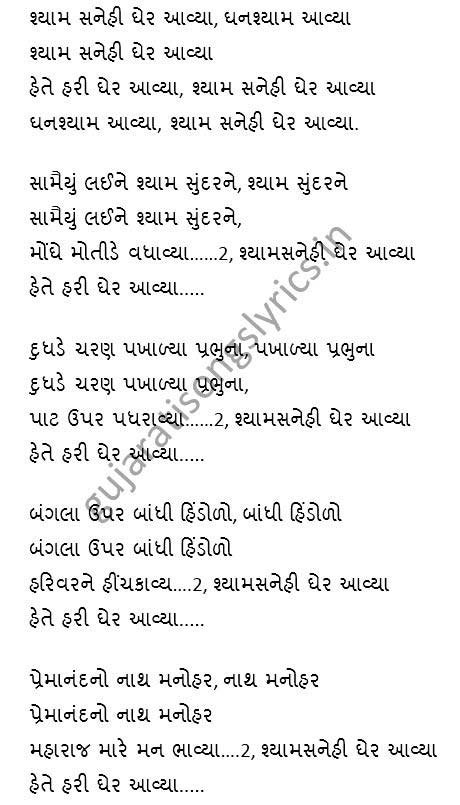 શ્યામ સનેહી ઘેર આવ્યા, ઘનશ્યામ આવ્યા
શ્યામ સનેહી ઘેર આવ્યા
હેતે હરી ઘેર આવ્યા, શ્યામ સનેહી ઘેર આવ્યા
ઘનશ્યામ આવ્યા, શ્યામ સનેહી ઘેર આવ્યા.
સામૈયું લઈને શ્યામ સુંદરને, શ્યામ સુંદરને
સામૈયું લઈને શ્યામ સુંદરને,
મોંઘે મોતીડે વધાવ્યા......2, શ્યામસનેહી ઘેર આવ્યા
હેતે હરી ઘેર આવ્યા.....
દુધડે ચરણ પખાળ્યા પ્રભુના, પખાળ્યા પ્રભુના
દુધડે ચરણ પખાળ્યા પ્રભુના,
પાટ ઉપર પધરાવ્યા......2, શ્યામસનેહી ઘેર આવ્યા
હેતે હરી ઘેર આવ્યા.....
બંગલા ઉપર બાંધી હિંડોળો, બાંધી હિંડોળો
બંગલા ઉપર બાંધી હિંડોળો
હરિવરને હીંચકાવ્ય....2, શ્યામસનેહી ઘેર આવ્યા
હેતે હરી ઘેર આવ્યા.....
પ્રેમાનંદનો નાથ મનોહર, નાથ મનોહર
પ્રેમાનંદનો નાથ મનોહર
મહારાજ મારે મન ભાવ્યા....2, શ્યામસનેહી ઘેર આવ્યા
હેતે હરી ઘેર આવ્યા.....
gujaratisongslyrics.in